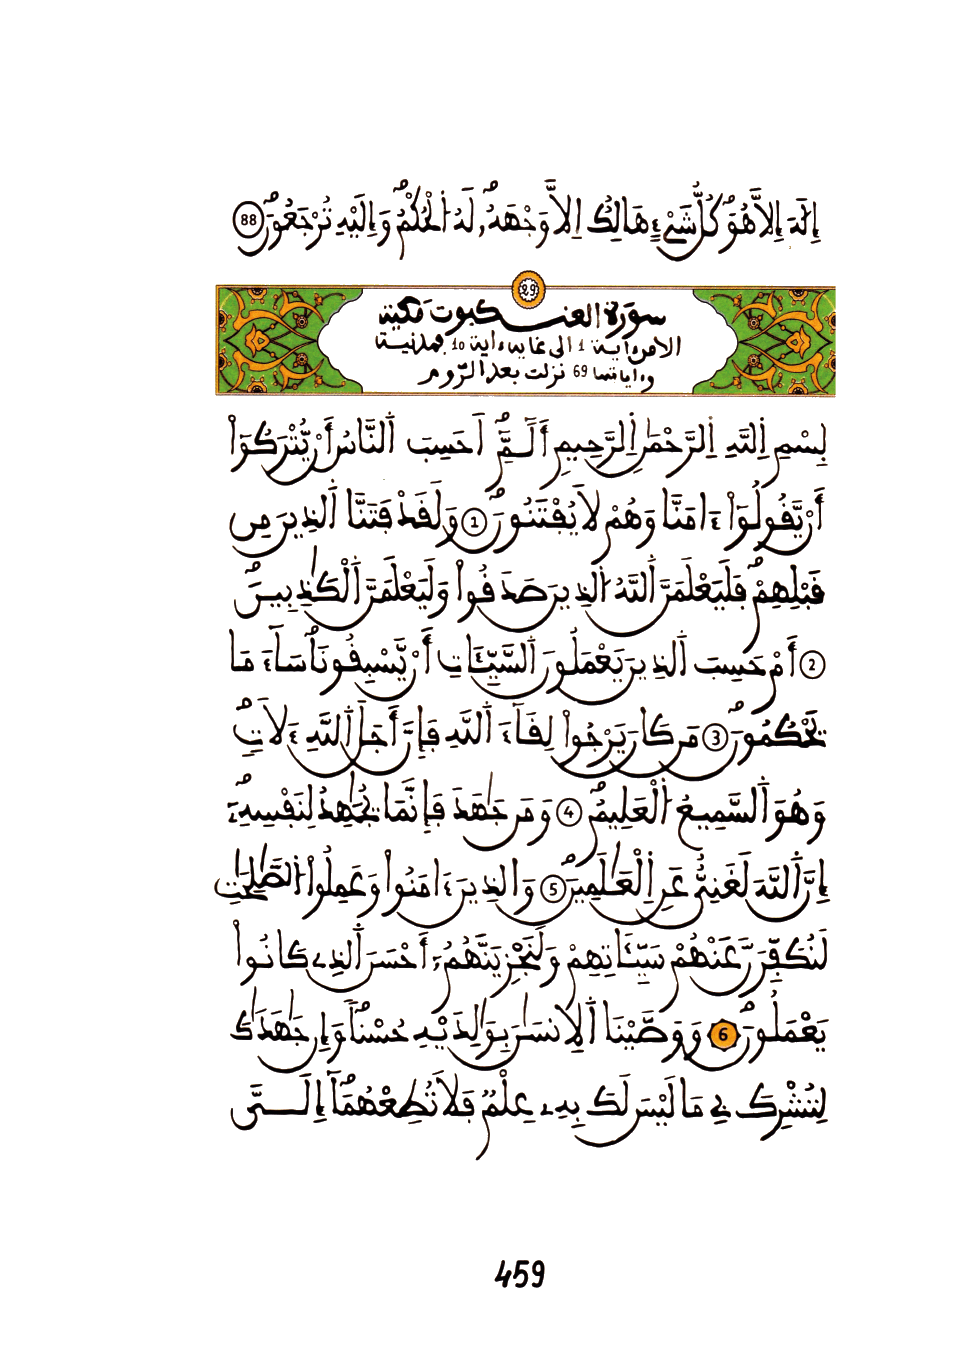 إِلَٰهَ إِلَّا هُوَ كُلُّ شَيْءٍ هَالِكٌ اِلَّا وَجْهَهُۥ لَهُ اُ۬لْحُكْمُ وَإِلَيْهِ تُرْجَعُونَ 88
29
سورة العنكبوت مكية
الا من ءاية 1 الى غاية ءاية 10 فمدنية
وءاياتها 69 نزلت بعد الروم
بِسْمِ اِ۬للَّهِ اِ۬لرَّحْمَٰنِ اِ۬لرَّحِيمِ أَلَٓمِّٓ أَحَسِبَ اَ۬لنَّاسُ أَنْ يُّتْرَكُوٓاْ
أَنْ يَّقُولُوٓاْ ءَامَنَّا وَهُمْ لَا يُفْتَنُونَ 1 وَلَقَدْ فَتَنَّا اَ۬لذِينَ مِن
قَبْلِهِمْ فَلَيَعْلَمَنَّ اَ۬للَّهُ اُ۬لذِينَ صَدَقُواْ وَلَيَعْلَمَنَّ اَ۬لْكَٰذِبِينَ
2 أَمْ حَسِبَ اَ۬لذِينَ يَعْمَلُونَ اَ۬لسَّيِّـَٔاتِ أَنْ يَّسْبِقُونَا سَآءَ مَا
يَحْكُمُونَ 3 مَن كَانَ يَرْجُواْ لِقَآءَ اَ۬للَّهِ فَإِنَّ أَجَلَ اَ۬للَّهِ ءَلَاتٍ
وَهُوَ اَ۬لسَّمِيعُ اُ۬لْعَلِيمُ 4 وَمَن جَٰهَدَ فَإِنَّمَا يُجَٰهِدُ لِنَفْسِهِۦٓ
إِنَّ اَ۬للَّهَ لَغَنِيٌّ عَنِ اِ۬لْعَٰلَمِينَ 5 وَالذِينَ ءَامَنُواْ وَعَمِلُواْ اُ۬لصَّٰلِحَٰتِ
لَنُكَفِّرَنَّ عَنْهُمْ سَيِّـَٔاتِهِمْ وَلَنَجْزِيَنَّهُمُۥٓ أَحْسَنَ اَ۬لذِے كَانُواْ
يَعْمَلُونَ 6 وَوَصَّيْنَا اَ۬لِانسَٰنَ بِوَٰلِدَيْهِ حُسْناً وَإِن جَٰهَدَٰكَ
لِتُشْرِكَ بِے مَا لَيْسَ لَكَ بِهِۦ عِلْمٌ فَلَا تُطِعْهُمَآ إِلَيَّ
459